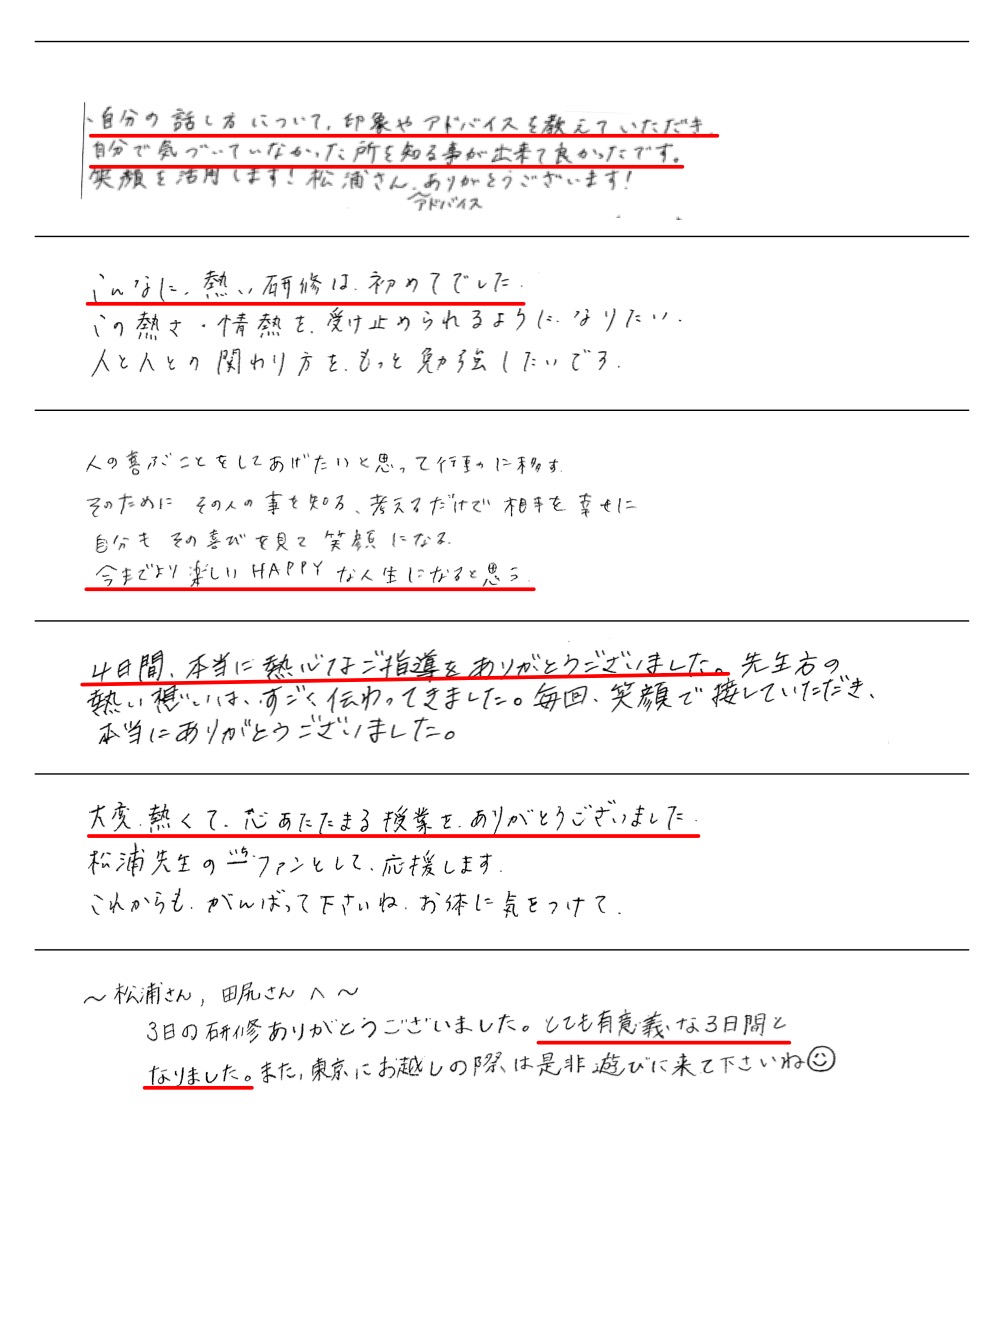 ・自分の話し方について、印象やアドバイスを教えていただき、
自分で気づいていなかった所を知る事が出来て良かったです。
笑顔を活用します!松浦さん、ありがとうございます!
アドバイス
こんなに、熱い研修は、初めてでした。
この熱さ・情熱を、受け止められるように、なりたい。
人と人との関わり方を、もっと勉強したいです。
人の喜ぶことをしてあげたいと思って行動に移す。
そのために その人の事を知る、考えるだけで相手を幸せに
自分も その喜びを見て 笑顔になる。
今までより楽しいHAPPYな人生になると思う。
4日間、本当に熱心なご指導をありがとうございました。先生方の
熱い想いは、すごく伝わってきました。毎回、笑顔で接していただき、
本当にありがとうございました。
大変、熱くて、心あたたまる授業を、ありがとうございました。
松浦先生の ファンとして、応援します。
これからも、がんばって下さいね。お体に気をつけて。
〜松浦さん, 田尻さんへ〜
3日の研修ありがとうございました。とても有意義な3日間と
なりました。また、東京にお越しの際は是非遊びに来て下さいね☺